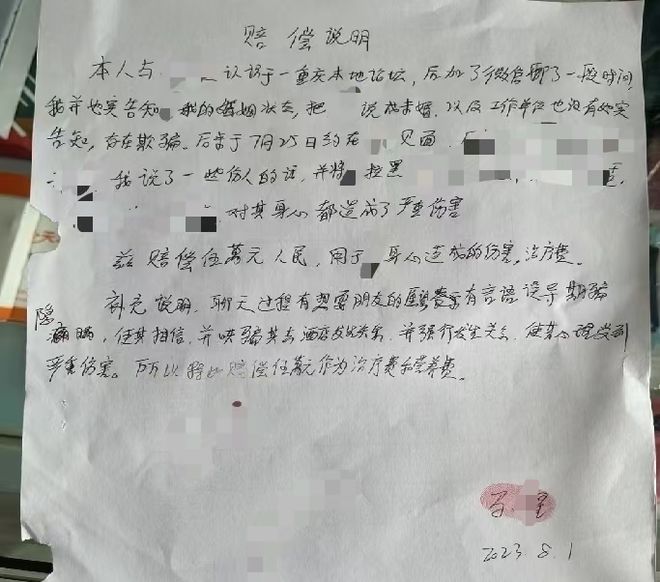 赔偿说明
本人与 认识于一重庆本地论坛，后加了微信聊了一段时间
我并如实告知，我的婚姻状态，把 说成未婚，以及工作单位也没有如实
告知，存在欺骗。后来于7月25日约在 见面，
我说了一些伤人的话，并将 拉黑
对其身心都造成了严重伤害
兹赔偿伍萬元人民，用于 身心造成的伤害。治疗费。
补充说明，聊天过程有想要朋友的 有言语误导欺骗
隐瞒，使其相信，并哄骗其去酒店发生关系，并强行发生关系，使其心理受到
严重伤害。 以 赔偿伍萬元作为治疗费和营养费。
2023.8.1